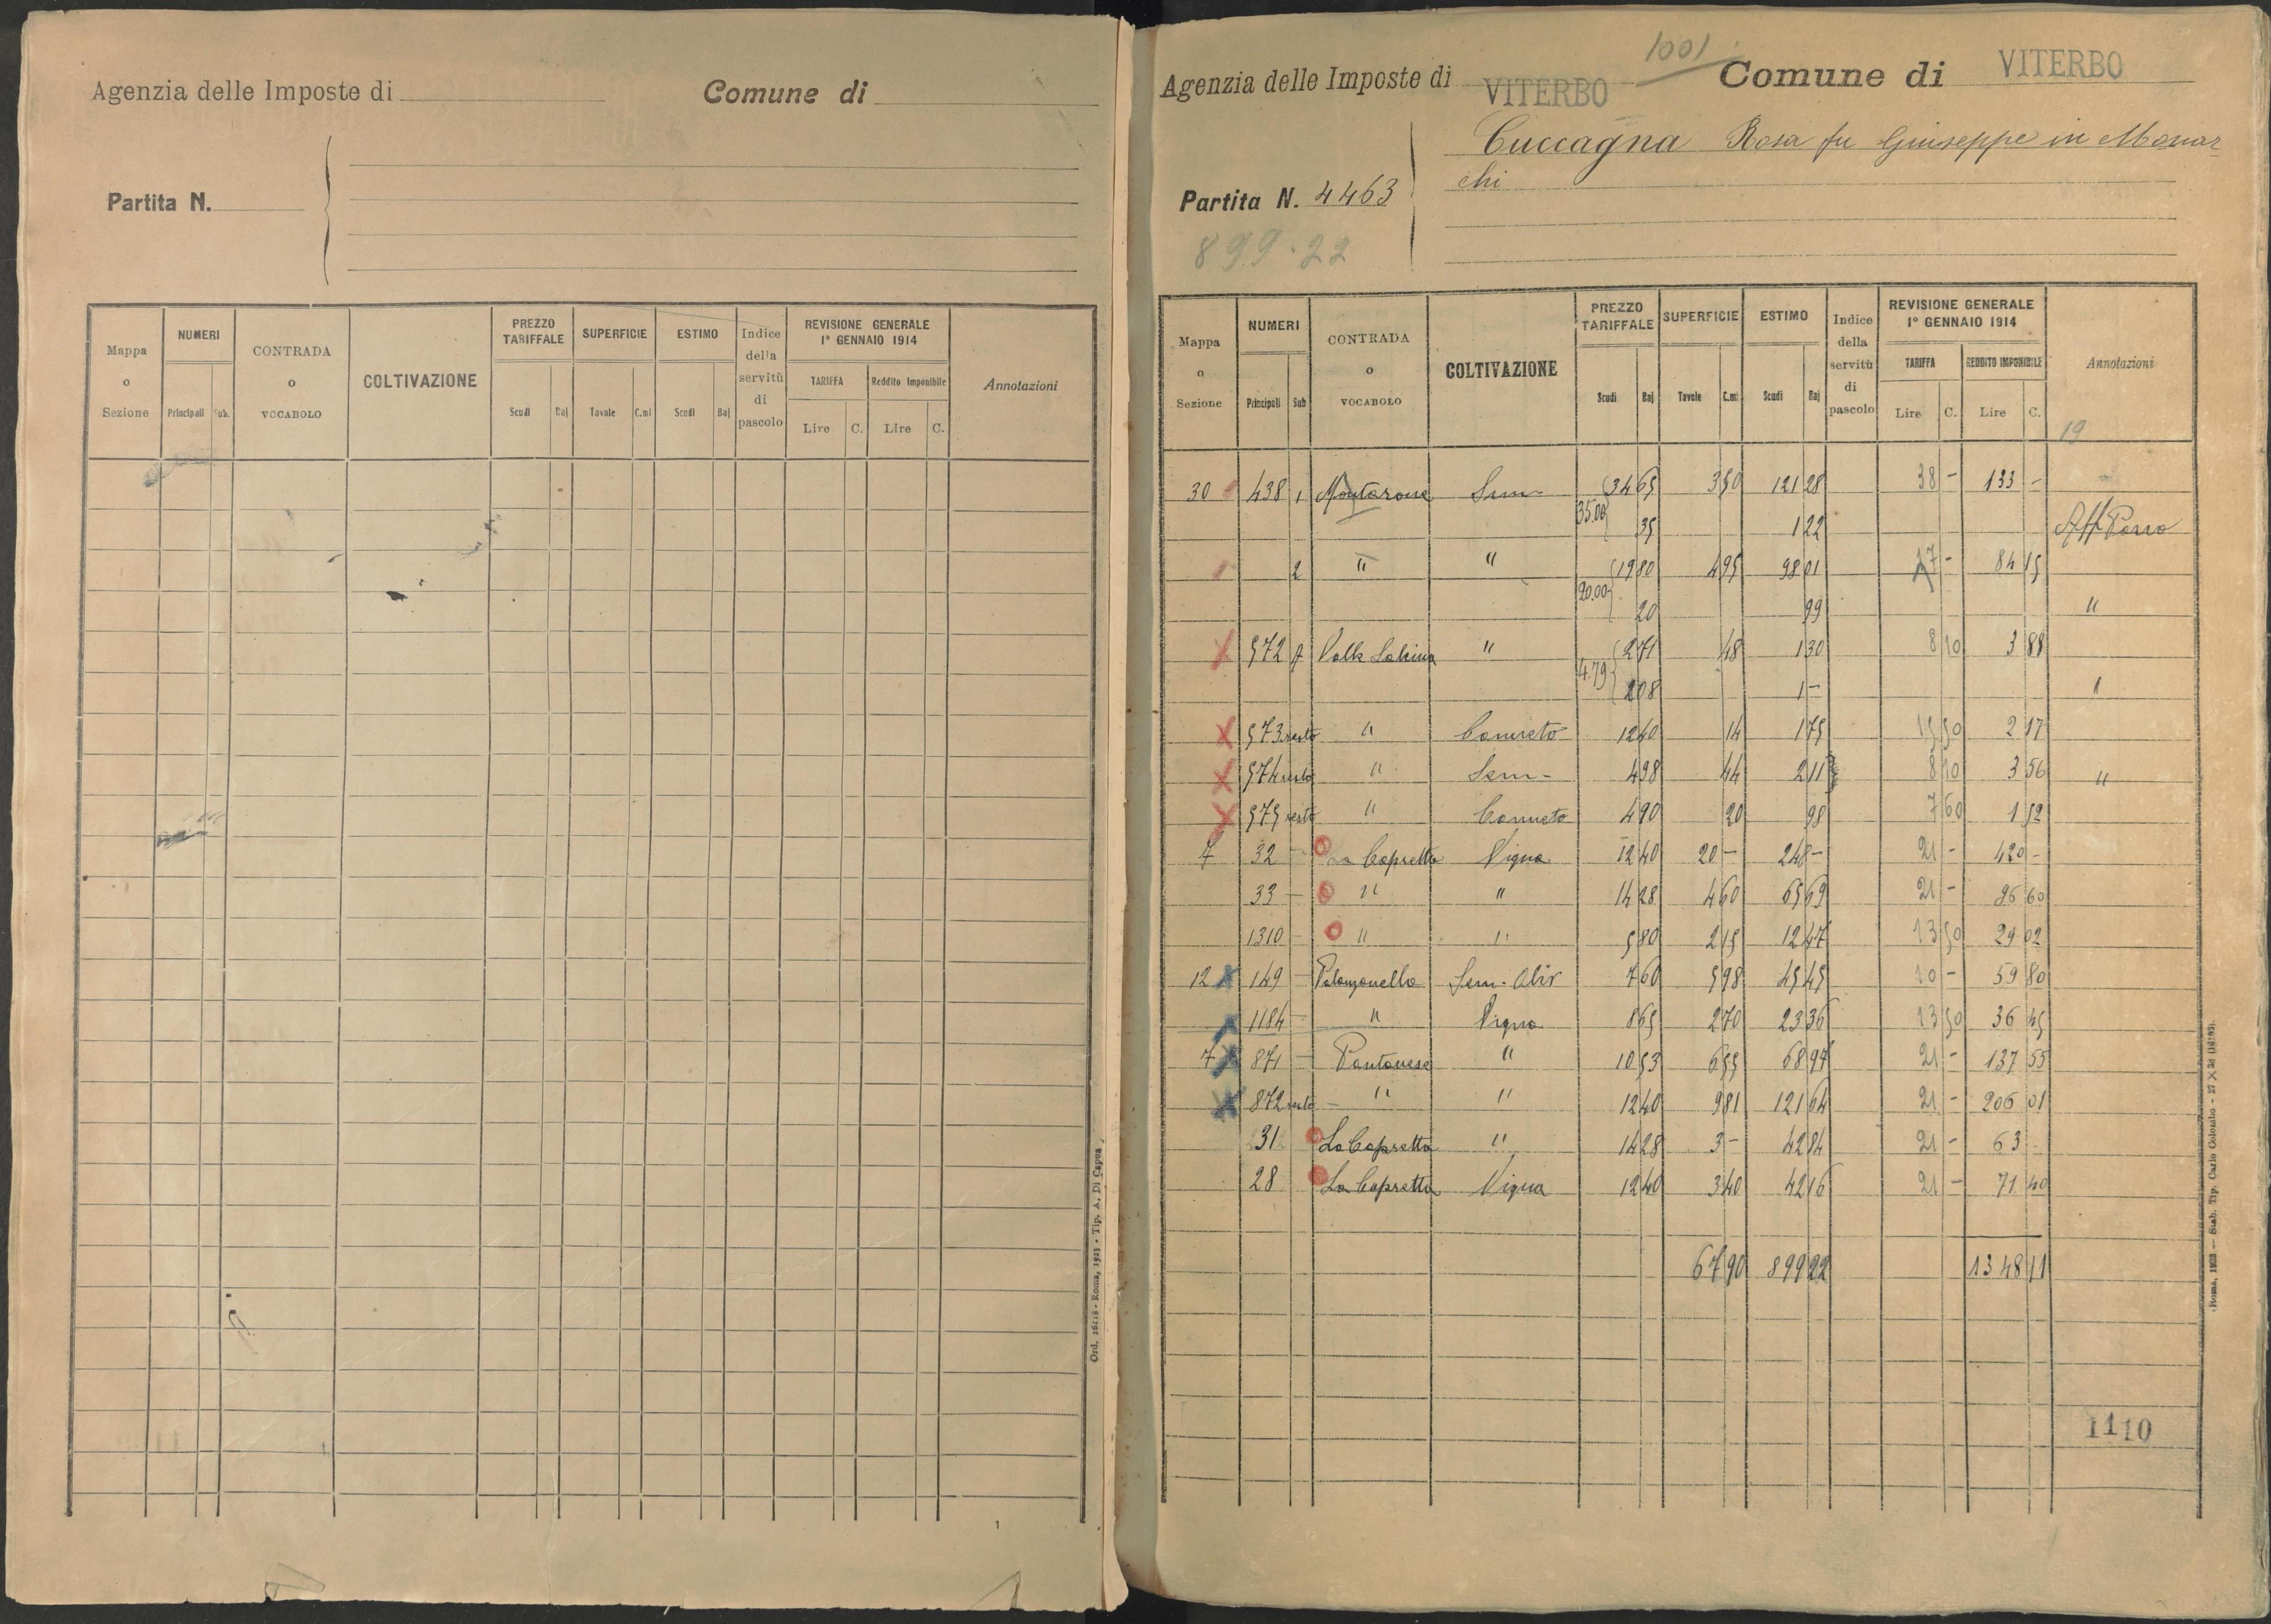 Agenzia delle Imposte di
Comune di
Partita N.
Mappa o Sezione
NUMERI
Principali
Sub.
CONTRADA o VOCABOLO
COLTIVAZIONE
PREZZO TARIFFALE
Scudi
Baj
SUPERFICIE
Tavole
C.mi
ESTIMO
Scudi
Baj
Indice della servitù di pascolo
REVISIONE GENERALE 1° GENNAIO 1914
TARIFFA
Reddito Imponibile
Lire C. Lire C.
Annotazioni
Ord. 16118 - Roma, 1923 - Tip. A. Di Capua
1001
Agenzia delle Imposte di VITERBO
Comune di VITERBO
Cuccagna Rosa fu Giuseppe in Monar
chi
Partita N. 4463
899.22
Mappa o Sezione
NUMERI
Principali
Sub
CONTRADA o VOCABOLO
COLTIVAZIONE
PREZZO TARIFFALE
Scudi
Baj
SUPERFICIE
Tavole
C.mi
ESTIMO
Scudi
Baj
Indice della servitù di pascolo
REVISIONE GENERALE 1° GENNAIO 1914
TARIFFA
REDDITO IMPONIBILE
Lire C. Lire C.
Annotazioni
19
30 438 1 Montarone Sem- 34 65 3 50 121 28 38 - 133 -
35.00 35 1 22 Aff
2 " " 19 80 4 95 98 01 17 - 84 15
20.00 20 99 "
572 " 2 71 48 1 30 8 10 3 88
4.79 2 08 1 - "
573 resto " Canneto 12 40 14 1 75 15 50 2 17
574 resto " Sem- 4 98 44 2 11 8 10 3 56 "
575 resto " Canneto 4 90 20 98 7 60 1 52
7 32 - La Capretta Vigna 12 40 20 - 248 - 21 - 420 -
33 - " " 14 28 4 60 65 69 21 - 96 60
1310 - " " 5 80 2 15 12 47 13 50 29 02
12 149 - Palanzanella Sem. Oliv 7 60 5 98 45 45 10 - 59 80
1184 - " Vigna 8 65 2 70 23 36 13 50 36 45
7 871 - Pantanese " 10 53 6 55 68 97 21 - 137 55
872 resto - " " 12 40 9 81 121 64 21 - 206 01
31 La Capretta " 14 28 3 - 42 84 21 - 63 -
28 La Capretta Vigna 12 40 3 40 42 16 21 - 71 40
67 90 899 22 1348 11
1110
Roma, 1923 — Stab. Tip. Carlo Colombo